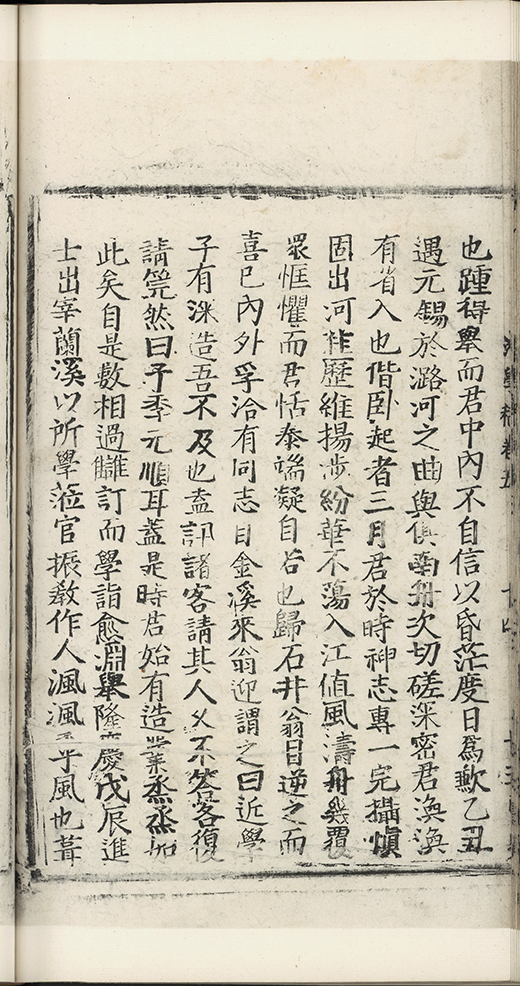 也踵得舉而君中內不自信以昏茫度日為歉乙丑
遇元錫於潞河之曲與俱南舟次切磋深密君渙渙
有省入也偕臥起者三月君於時神志專一完攝慎
固出河淮歷維揚涉紛華不蕩入江值風濤舟幾覆
眾恇懼而君恬泰端凝自若也歸石井翁目逆之而
喜已內外孚洽有同志自金溪來翁迎謂之曰近學
子有深造吾不及也盍訊諸客請其人久不答客復
請筦然曰予季元順耳蓋是時君始有造業烝烝如
此矣自是數相過讎訂而學詣愈淵舉隆慶戊辰進
士出宰蘭溪以所學蒞官振教作人渢渢乎風也葺